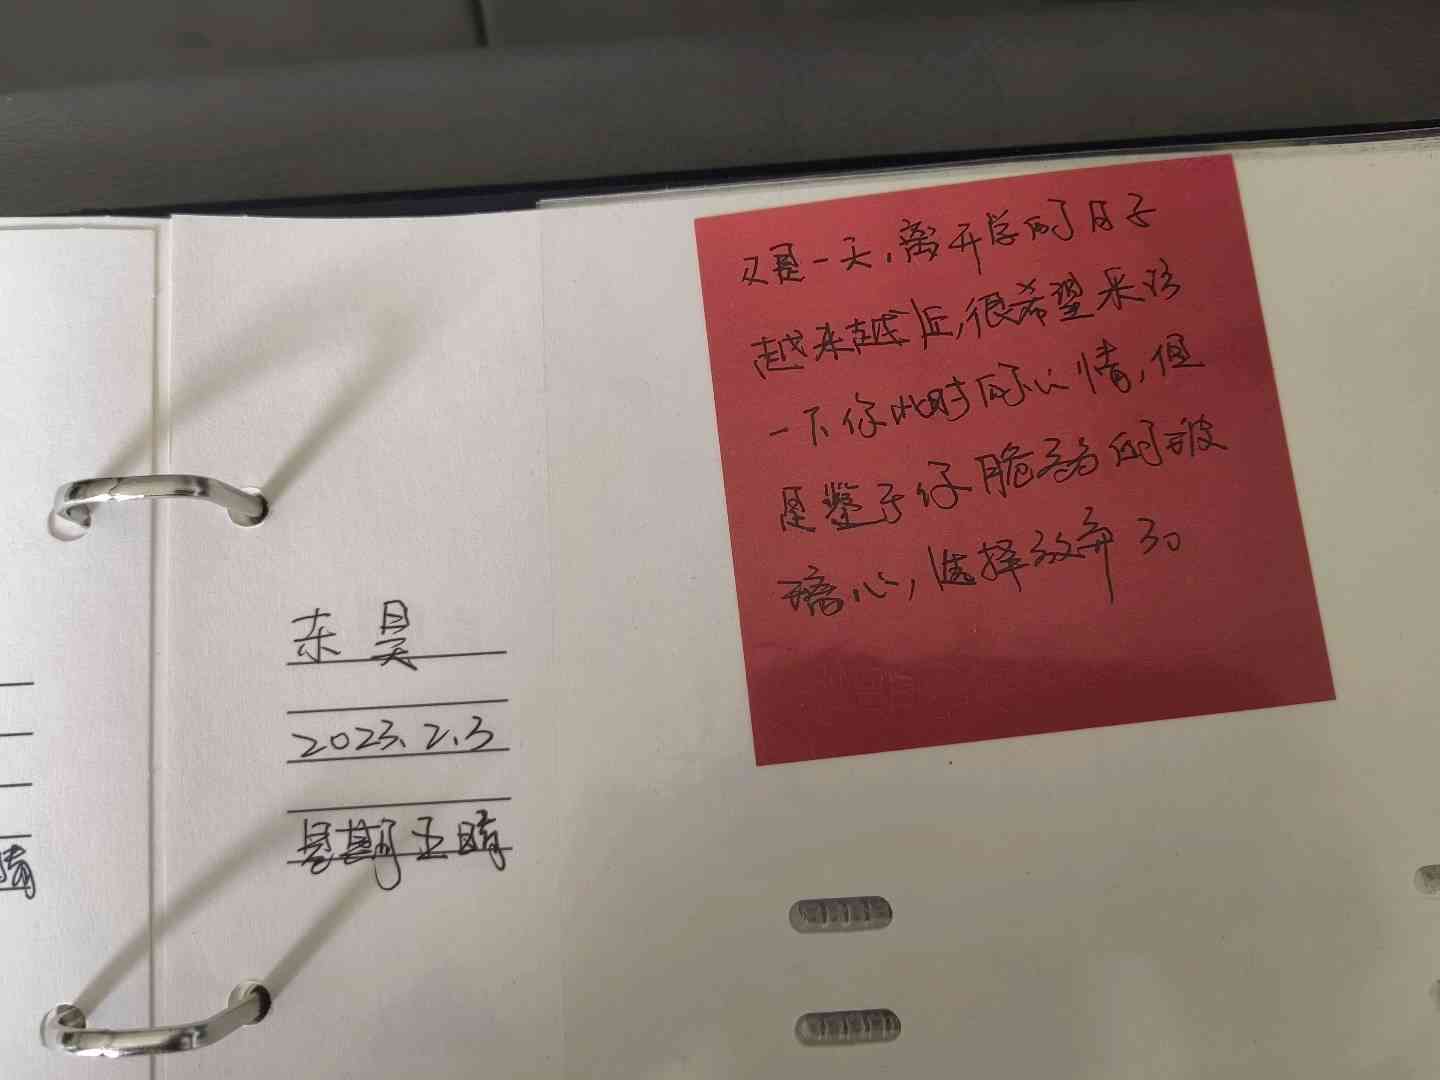 又是一天，离开学的日子
越来越近，很希望采访
一下你此时的心情，但
是鉴于你脆弱的玻
璃心，选择放弃了。
东昊
2023.2.3
星期五晴
晴